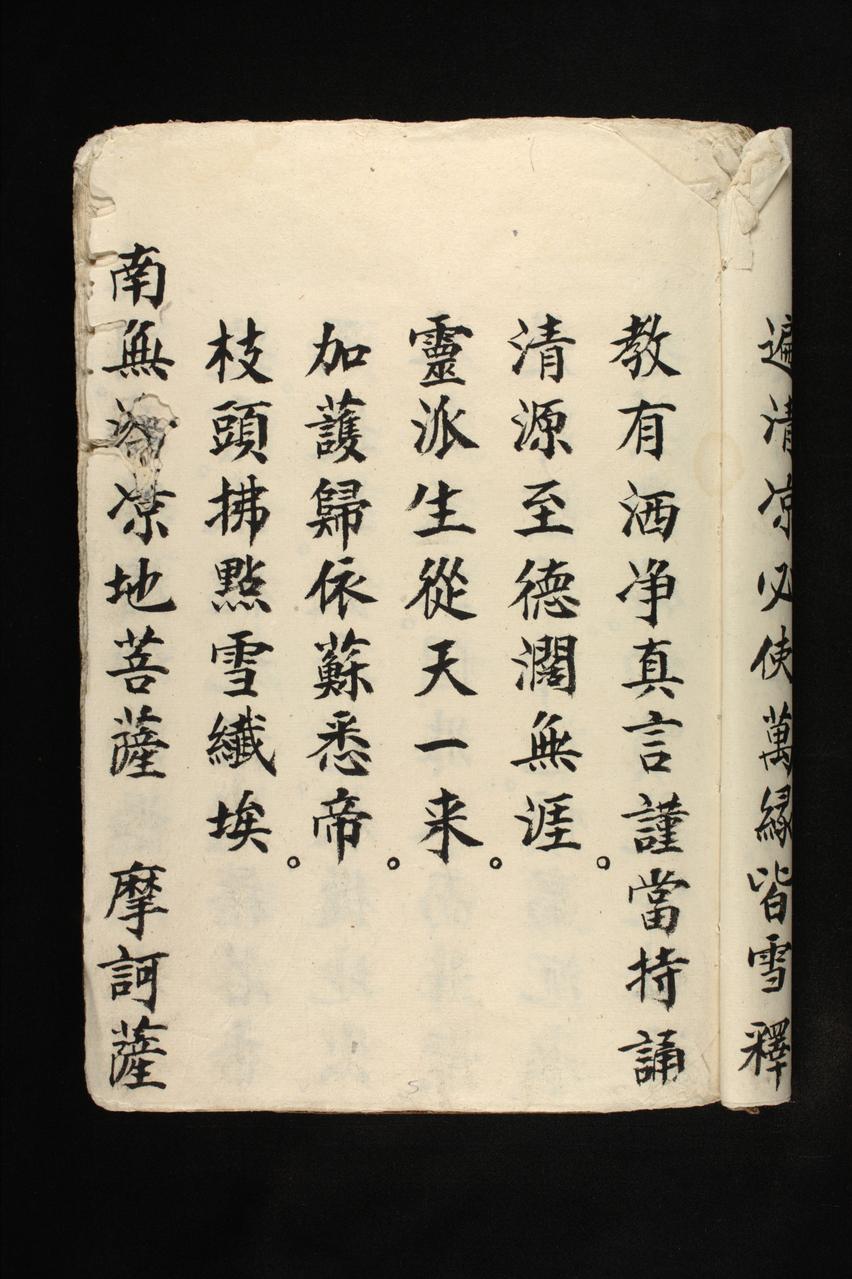 遍清凉必使萬緣皆雪釋
教有洒净真言謹當持誦
清源至德濶無涯。
靈派生從天一来。
加護歸依蘇悉帝。
枝頭拂點雪纖埃。
南無凉地菩薩 摩訶薩